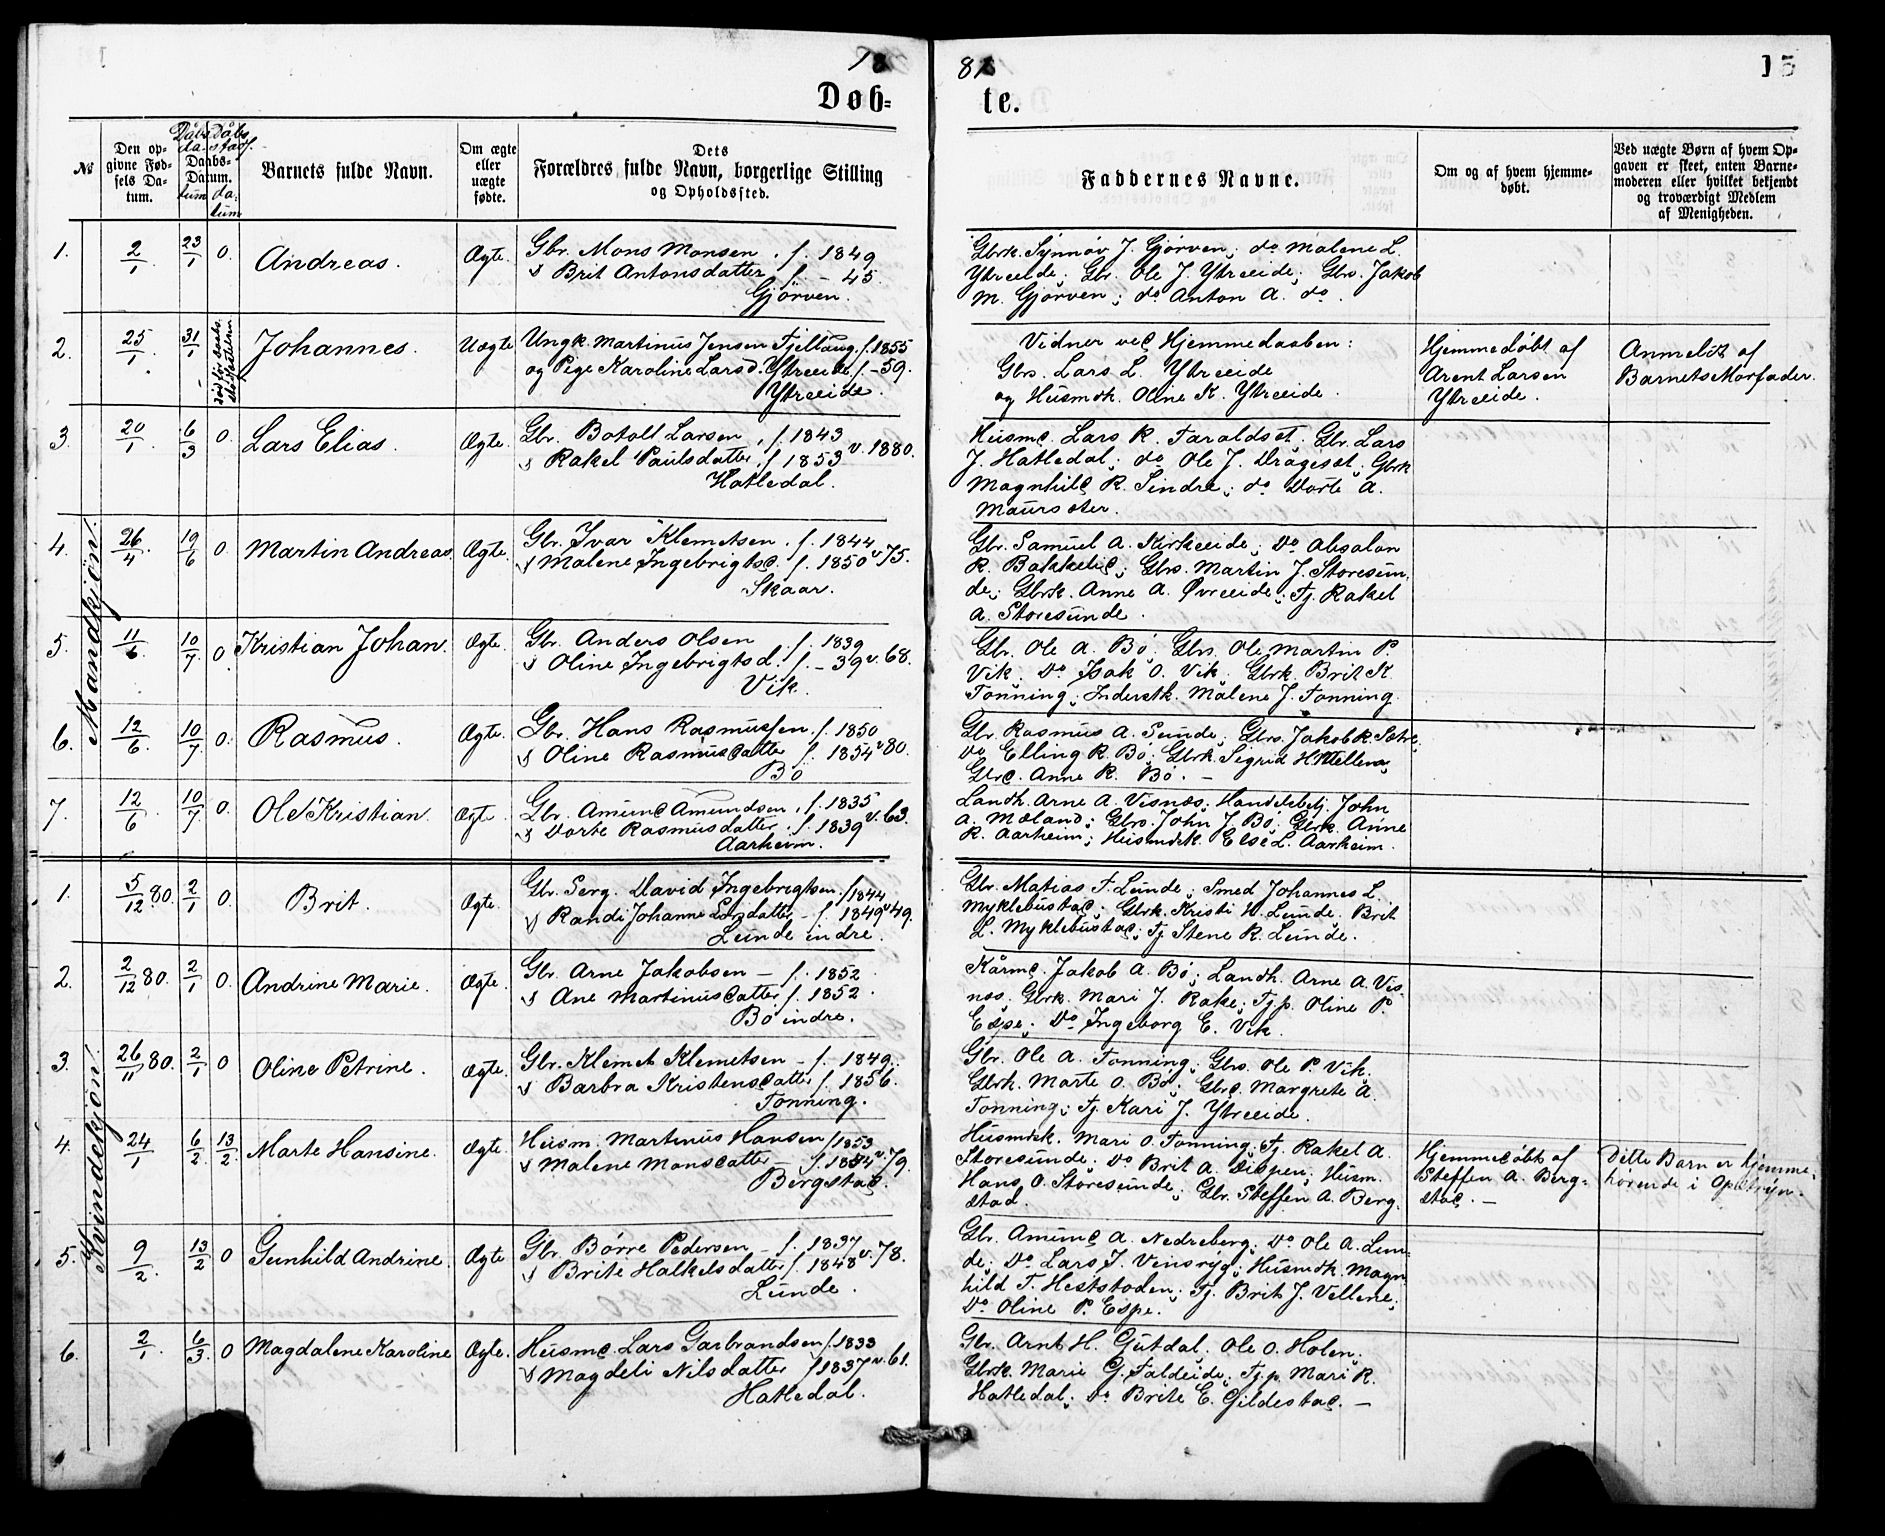 18
81
15
Døb=
te.
№
Den op-
givne Fød-
sels Da-
tum.
Dåbs
da-
Daabs-
Datum.
tum
Dåbs
stadf.
da-
tum
Barnets fulde Navn.
Om ægte
eller
uægte
fødte.
Dets
Forældres fulde Navn, borgerlige Stilling
og Opholdssted.
Faddernes Navne.
Om og af hvem hjemme-
døbt.
Ved uægte Børn af hvem Op-
gaven er skeet, enten Barne-
moderen eller hvilket bekjendt
og troværdigt Medlem
af Menigheden.
Mandkjön.
1. 2/1 23/1 0. Andreas. Ægte. Gbr. Mons Monsen . f. 1849
Brit Antonsdatter f. - 45.
Gjörven.
Gbrk. Synnöv J. Gjörven; do Malene L.
Ytreeide; Gbr. Ole J. Ytreeide; Gbrs. Jakob
M. Gjörven; do Anton A. do.
2. 25/1 31/1 Johannes. Uægte Ungk. Martinus Jensen Fjellaug. f. 1855
og Pige Karoline Larsd. Ytreeide f. - 59.
Ytreeide.
Vidner ved Hjemmedaaben:
Gbrs. Lars L. Ytreeide
og Husmdk. Oline K. Ytreeide.
Hjemmedöbt af
Arent Larsen
Ytreeide.
Anmeldt af
Barnets Morfader.
3. 20/1 6/3 0. Lars Elias. Ægte. Gbr. Botolf Larsen . f. 1843
Rakel Paulsdatter f. 1853 v. 1880.
Hatledal.
Husmd. Lars R. Taraldset. Gbr. Lars
J. Hatledal; do Ole J. Drageset; Gbrk
Magnhild R. Sindre; do Dorte A.
Maursæter.
4. 26/4 19/6 0. Martin Andreas. Ægte. Gbr. Ivar Klemetsen . f. 1844
Malene Ingebrigtsd. f. 1850 v. 75.
Skaar.
Gbr. Samuel A. Kirkeeide; Do Absalon
R. Bakkelid; Gbrs. Martin J. Storesun-
de; Gbrk. Anne A. Øvreeide; Tj. Rakel
A. Storesunde.
5. 11/6 10/7 0 Kristian Johan. Ægte. Gbr. Anders Olsen f. 1839
Oline Ingebrigtsd. f. - 39 v. 68.
Vik.
Gbr. Ole A. Bö; Gbrs. Ole Martin P.
Vik; Do Isak O. Vik; Gbrk. Brit K.
Tonning; Inderstk. Malene J. Tonning.
6. 12/6 10/7 0. Rasmus. Ægte. Gbr. Hans Rasmussen f. 1850
Oline Rasmusdatter f. 1854 v. 80.
Bö
Gbr. Rasmus A. Sunde; Gbrs. Jakob K. Sætre;
Do Elling R. Bö; Gbrk. Sigrid H. Vellene;
Gbrd. Anne R. Bö. -
7. 12/6 10/7 0. Ole Kristian. Ægte. Gbr. Amund Amundsen . f. 1835
Dorte Rasmusdatter . f. 1839 v. 63.
Aarheim.
Landh. Arne A. Visnes; Handelsbetj. John
A. Mæland; Gbrs. John J. Bö; Gbrk. Anne
R. Aarheim; Husmdsk. Else L. Aarheim.
Kvindekjön.
1. 5/12 80. 2/1 0. Brit. Ægte. Gbr. Serg. David Ingebrigtsen f. 1844
Randi Johanne Larsdatter - f. 1849 v. 49.
Lunde indre.
Gbr. Matias T. Lunde; Smed Johannes L.
Myklebustad; Gbrk. Kristi H. Lunde; Brit
L. Myklebustad; Tj. Stene R. Lunde.
2. 2/12 80. 2/1 0. Andrine Marie. Ægte. Gbr. Arne Jakobsen - f. 1852
Ane Martinusdatter f. 1852.
Bö indre.
Kårmd. Jakob A. Bö; Landh. Arne A. Vis-
nes; Gbrk. Mari J. Rake; Tj.p. Oline P.
Espe; Do Ingeborg E. Vik.
3. 26/11 80. 2/1 0 Oline Petrine. Ægte. Gbr. Klemet Klemetsen - f. 1849.
Barbra Kristensdatter f. 1856.
Tonning.
Gbr. Ole A. Tonning; Gbrs. Ole P. Vik;
Gbrk. Marte O. Bö; Gbrd. Margrete A.
Tonning; Tj. Kari J. Ytreeide.
4. 24/1 6/2 13/2 Marte Hansine. Ægte. Husm. Martinus Hansen f. 1853
Malene Monsdatter - f. 1854 v. 79.
Bergstad.
Husmdsk. Mari O. Tonning; Tj. Rakel A.
Storesunde; Do Brit A. Dispen; Husm.
Hans O. Storesunde; Gbr. Steffen A. Berg-
stad.
Hjemmedöbt af
Steffen A. Berg-
stad. -
Dette Barn er hjemme-
hörende i Opstryn.
5. 9/2 13/2 0 Gunhild Andrine. Ægte Gbr. Börre Pedersen - f. 1837
Brite Halkelsdatter f. 1848 v. 78.
Lunde.
Gbr. Amund A. Nedreberg; Do Ole A. Lun-
de; Do Lars J. Vinsrýg; Husmdk. Magn-
hild T. Heststoden; Tj. Brit J. Vellene;
Do Oline P. Espe.
6. 2/1 6/3 0 Magdalene Karoline Ægte. Husmd. Lars Garbrandsen f. 1833
Magdeli Nilsdatter f. 1837 v. 61.
Hatledal.
Gbr. Arnt H. Gutdal; Ole O. Holen;
Gbrk. Marie G. Faldeide; Tj.p. Mari R.
Hatledal; Do Brite E. Gildestad. -